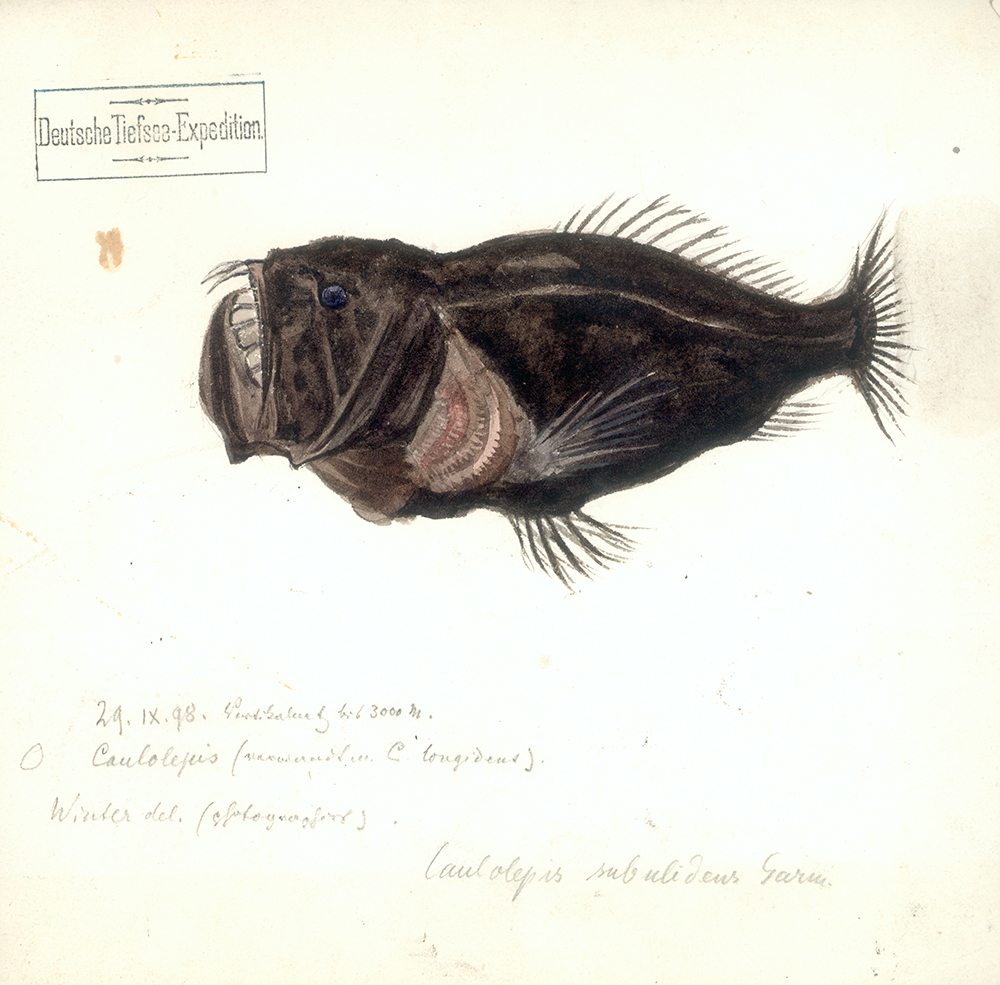 Deutsche Tiefsee-Expedition.
29. IX. 98. Vertikalnetz bis 3000 m.
Caulolepis (verwandt m. C longidens).
Winter del. (photographirt).
Caulolepis subulidens Garm.